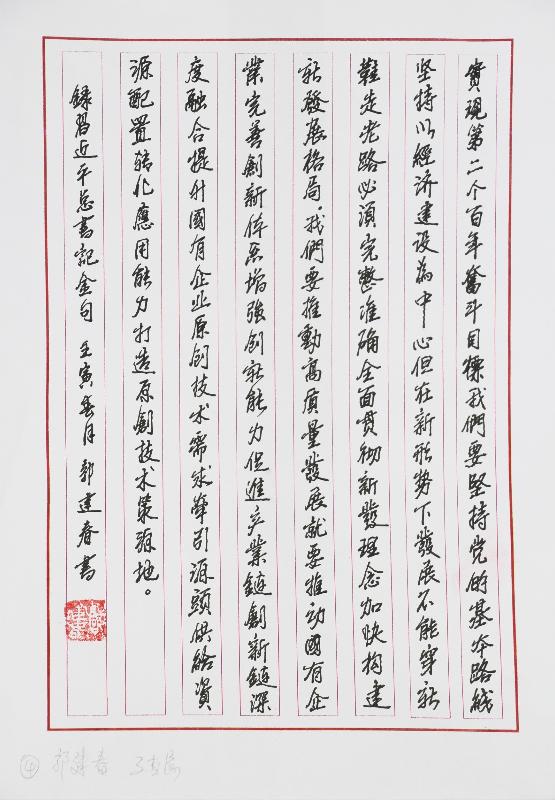 實現第二个百年奮斗目標我們要堅持党的基本路线
坚持以經济建设為中心但在新形势下發展不能穿新
鞋走老路必須完整准确全面贯彻新發理念加快构建
新發展格局。我們要推動高质量發展就要推动國有企
業完善創新体系增強创新能力促進产業鏈創新鏈深
度融合提升國有企业原创技术需求牵引源頭供给資
源配置转化應用能力打造原創技术策源地。
録習近平总書記金句 壬寅春月 郭建春書
④ 郭建春